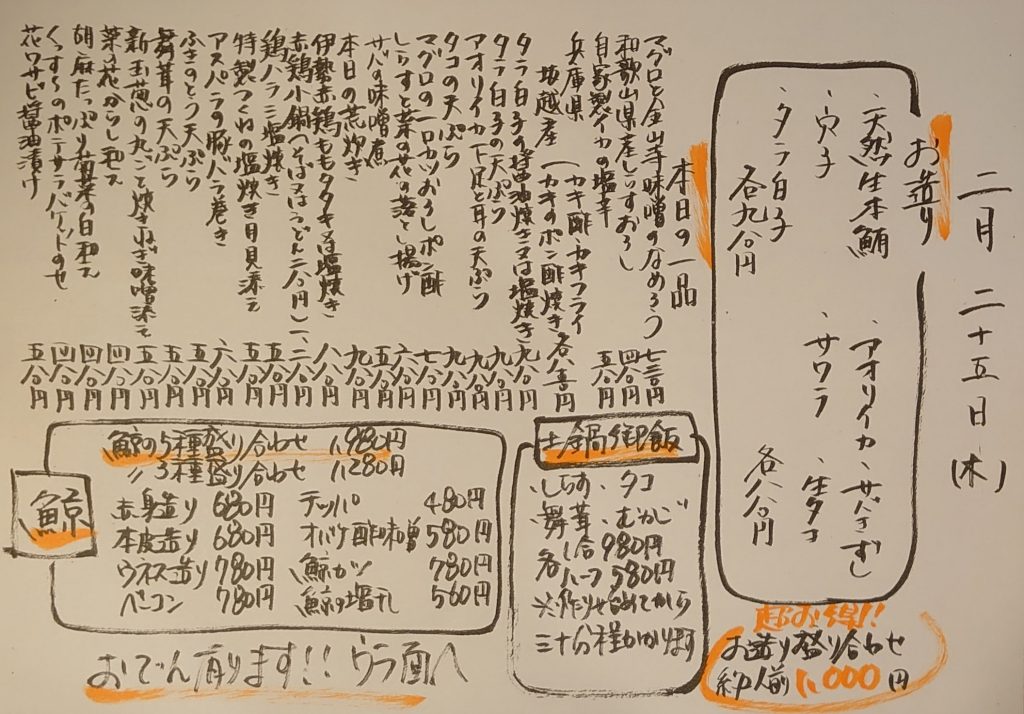 二月二十五日(木)
お造り
、天然生本鮪
、穴子
、タラ白子
各九八〇円
、アオリイカ、サバきずし
、サワラ、生タコ
各八八〇円
超お得!!
お造り盛り合わせ
約一人前1,000円
本日の一品
マグロと金山寺味噌のなめろう 七三〇円
和歌山県産しらすおろし 四八〇円
自家製イカの塩辛 五八〇円
兵庫県
坂越産
(カキ酢・カキフライ
(カキのポン酢焼き 各八三〇円
タラ白子の醤油焼き又は塩焼き 九八〇円
タラ白子の天ぷら 九八〇円
アオリイカ下足と耳の天ぷら 九八〇円
タコの天ぷら 九八〇円
マグロの一口カツおろしポン酢 七八〇円
しらすと菜の花の落とし揚げ 六八〇円
サバの味噌煮 五八〇円
本日の荒炊き 九八〇円
伊勢赤鶏ももタタキ又は塩焼き 八八〇円
赤鶏小鍋(そば又はうどん二八〇円) 一、二八〇円
鶏ハラミ塩焼き 五八〇円
特製つくねの塩焼き月見添え 五八〇円
アスパラの豚バラ巻き 六八〇円
ふきのとう天ぷら 五八〇円
舞茸の天ぷら 五八〇円
新玉葱の丸ごと焼きねぎ味噌添え 五八〇円
菜の花からし和え 四八〇円
胡麻たっぷり菊菜の白和え 四八〇円
くんすけのポテサラバゲットのせ 四八〇円
花ワサビ醤油漬け 五八〇円
土鍋御飯
、しらす、タコ
、舞茸、むかご
各一合980円
ハーフ580円
※作り始めてから
三十分程かかります
鯨
鯨の5種盛り合わせ 1,980円
〃3種盛り合わせ 1,280円
赤身造り 680円 テッパ 480円
本皮造り 680円 オバケ酢味噌 580円
ウネス造り 780円 鯨カツ 780円
ベーコン 780円 鯨の塩干し 560円
おでん有ります!!ウラ面へ